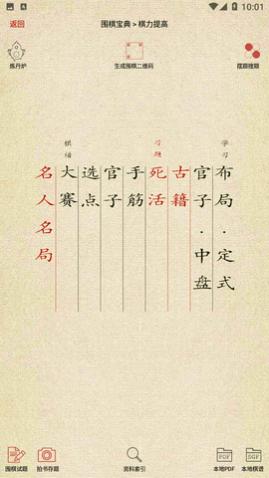 10:01
返回
围棋宝典 > 棋力提高
炼丹炉
生成围棋二维码
摆题搜题
学习
布局·定式
官子·中盘
古籍
习题
死活
手筋
官子
选点
棋谱
大赛
名人名局
围棋试题
拍书存题
资料索引
PDF
本地PDF
SGF
本地棋谱